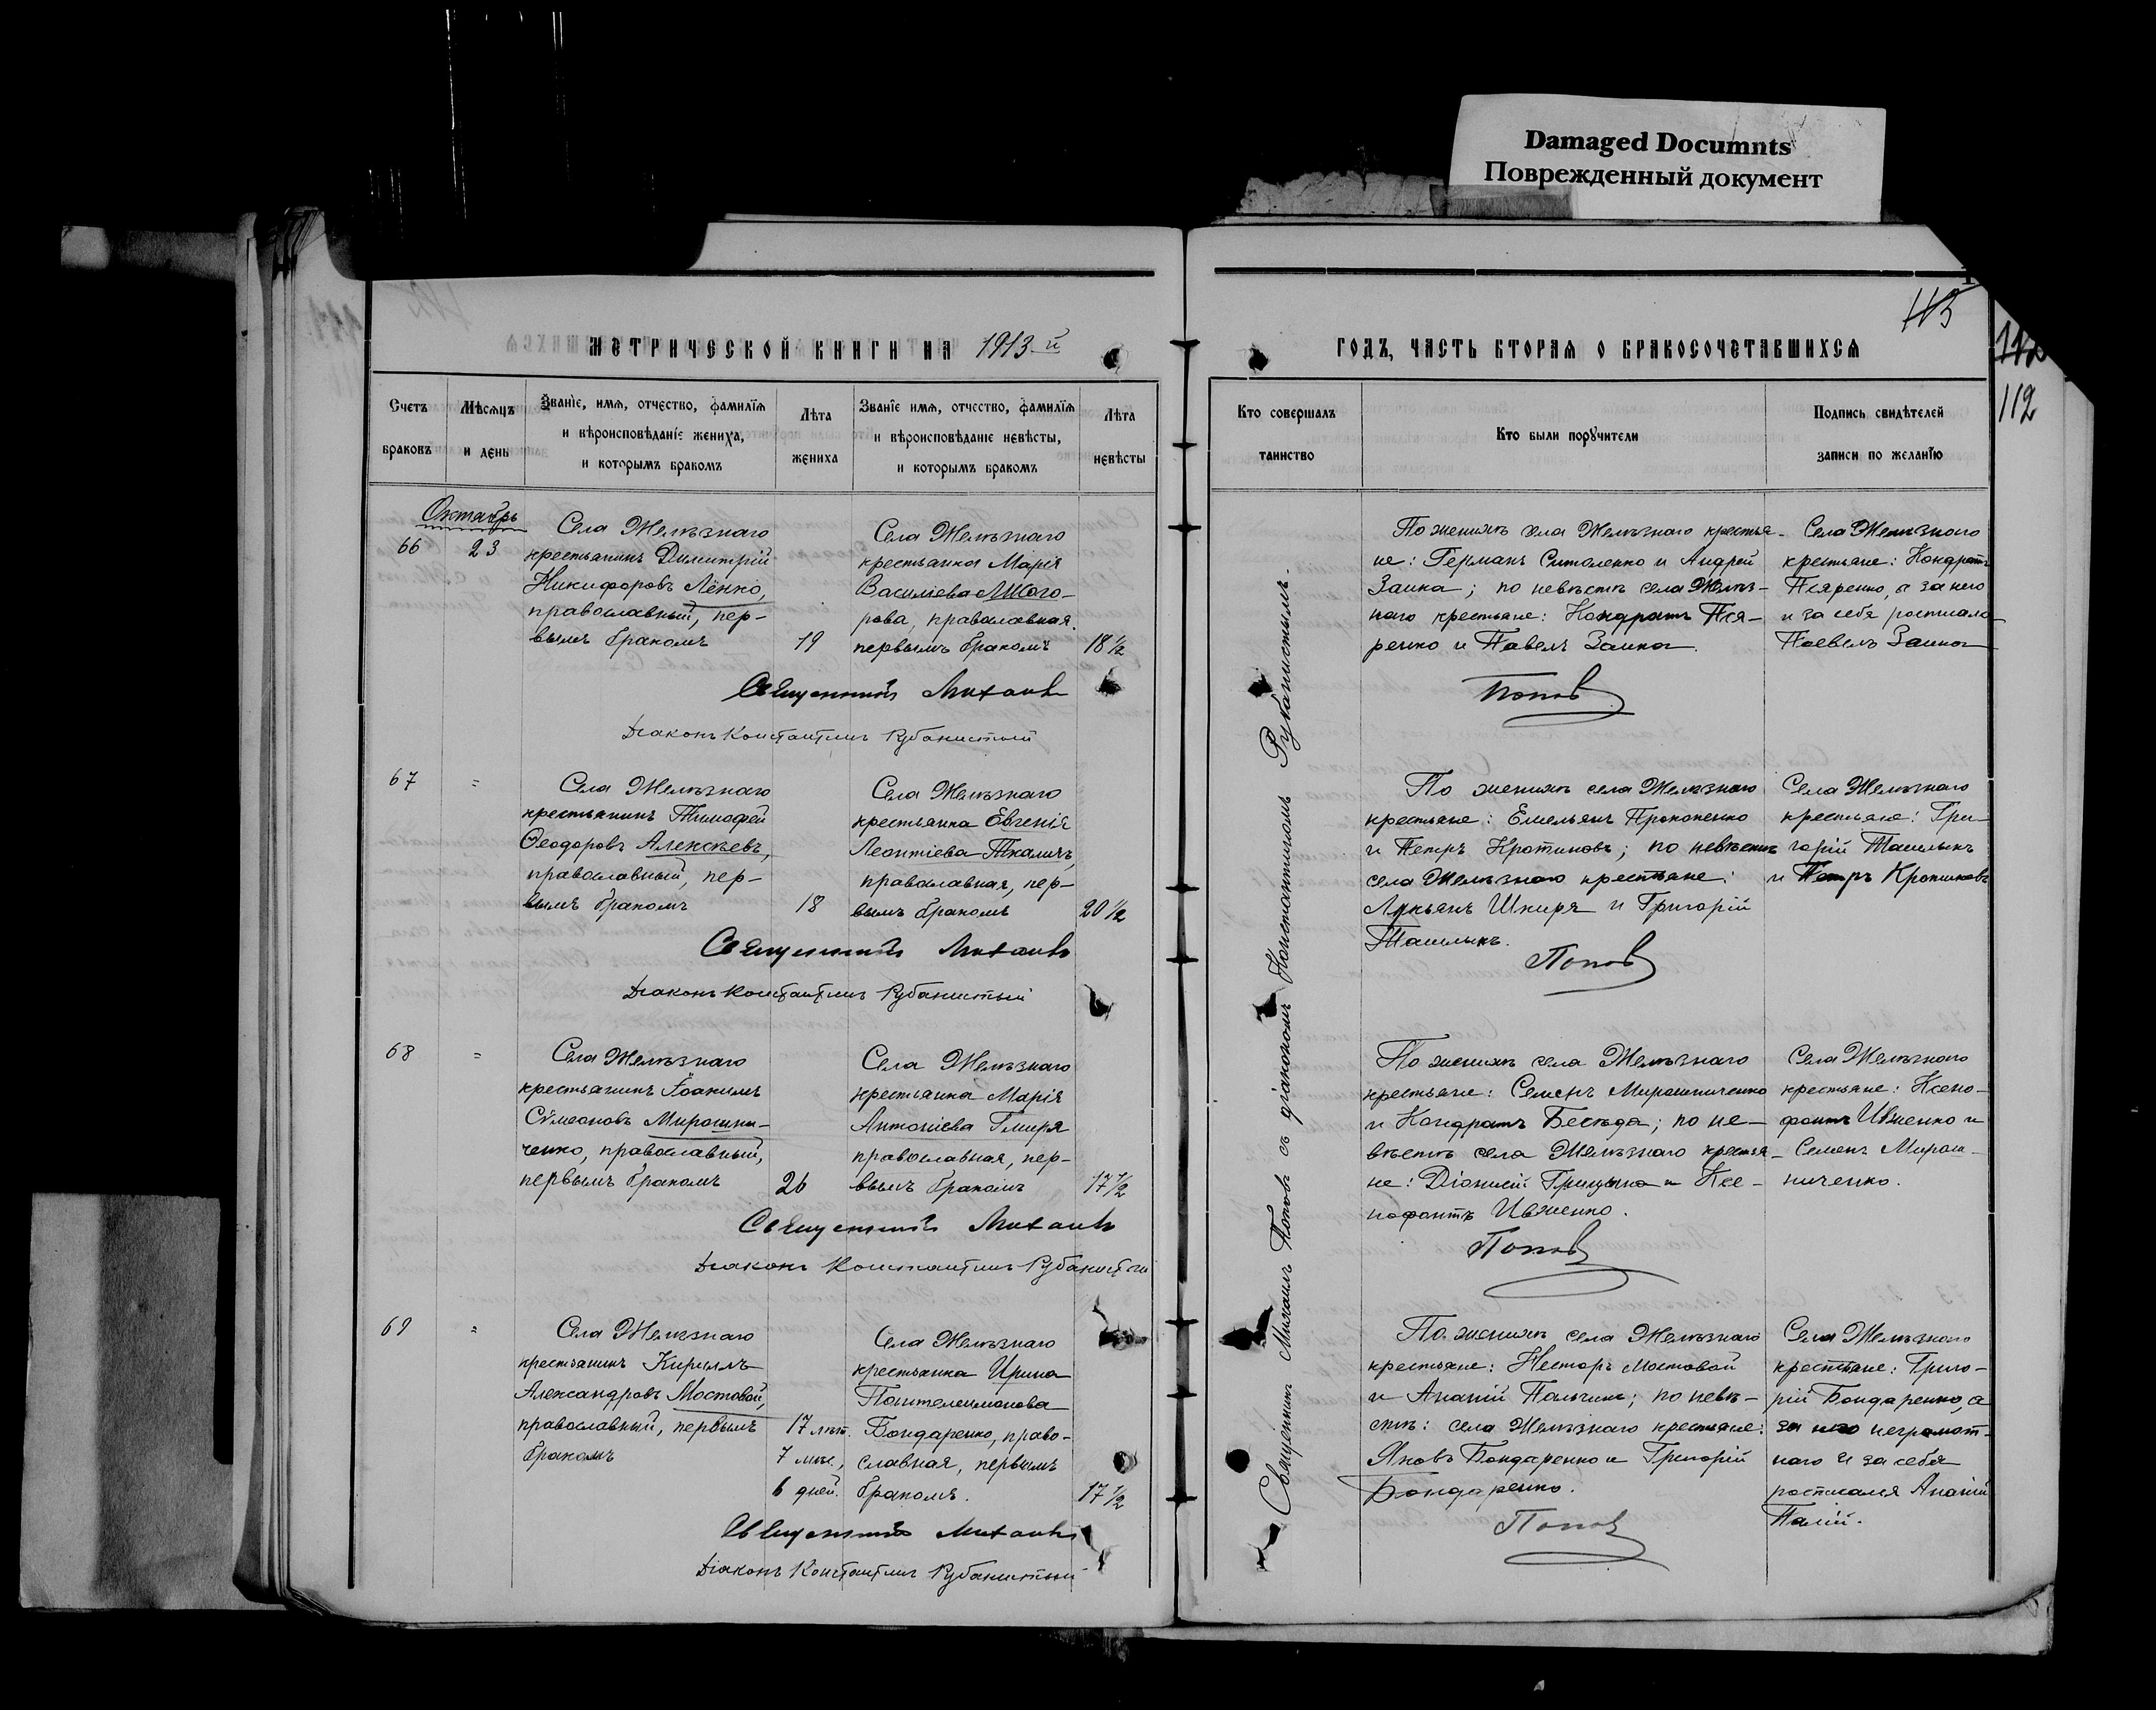 Damaged Documnts
Поврежденный документ
МЕТРИЧЕСКОЙ КНИГИ НА 1913 й
Счетъ браковъ
Мѣсяцъ и день
Званіе, имя, отчество, фамилія
и вѣроисповѣданіе жениха,
и которымъ бракомъ
Лѣта жениха
Званіе имя, отчество, фамилія
и вѣроисповѣданіе невѣсты,
и которымъ бракомъ
Лѣта невѣсты
Октябрь
66
23
Села Желѣзнаго
крестьянинъ Димитрій
Никифоровъ Лёнко,
православный, пер-
вымъ бракомъ
19
Села Желѣзнаго
крестьянка Марія
Василіева
православная.
первымъ бракомъ
18 1/2
Священникъ Михаилъ
Діаконъ Константинъ Рубанистый
67
=
Села Желѣзнаго
крестьянинъ Тимофей
Ѳеодоровъ Алексѣевъ,
православный, пер-
вымъ бракомъ
18
Села Желѣзнаго
крестьянка Евгенія
Леонтіева Ткаличъ,
православная, пер-
вымъ бракомъ
20 1/2
Священникъ Михаилъ
Діаконъ Константинъ Рубанистый
68
=
Села Желѣзнаго
крестьянинъ Іоакимъ
Сѷмеоновъ Мирошни-
ченко, православный,
первымъ бракомъ
26
Села Желѣзнаго
крестьянка Марія
Антоніева Гмиря
православная, пер-
вымъ бракомъ
17 1/2
Священникъ Михаилъ
Діаконъ Константинъ Рубанистый
69
=
Села Желѣзнаго
крестьянинъ Кириллъ
Александровъ Мостовой,
православный, первымъ
бракомъ
17 лѣт.
7 мѣс.,
6 дней.
Села Желѣзнаго
крестьянка Ирина
Пантелеимонова
Бондаренко, право-
славная, первымъ
бракомъ.
17 1/2
Священникъ Михаилъ
Діаконъ Константинъ Рубанистый
113
112
ГОДЪ, ЧАСТЬ ВТОРАЯ О БРАКОСОЧЕТАВШИХСЯ
Кто совершалъ
таинство
Кто были поручители
Подпись свидѣтелей
записи по желанію
Священникъ Михаилъ Поповъ съ діакономъ Константиномъ Рубанистымъ.
По женихѣ села Желѣзнаго крестья-
не: Германъ Ситаленко и Андрей
Заика; по невѣстѣ села Желѣз-
наго крестьяне: Кондратъ Пся-
ренко и Павелъ Заика.
Поповъ
Села Желѣзнаго
крестьяне: Кондратъ
Псяренко, а за него
и за себя росписался
Павелъ Заика
По женихѣ села Желѣзнаго
крестьяне: Емельянъ Прокопенко
и Петръ Кротиновъ; по невѣстѣ
села Желѣзнаго крестьяне:
Лукьянъ Шкиря и Григорій
Ташлыкъ.
Поповъ
Села Желѣзнаго
крестьяне: Гри-
горій Ташлыкъ
и Петръ
По женихѣ села Желѣзнаго
крестьяне: Семенъ Мирошниченко
и Кондратъ Бесѣда; по не-
вѣстѣ села Желѣзнаго крестья-
не: Діонисій Грицына и Ксе-
нофонтъ Ивженко.
Поповъ
Села Желѣзнаго
крестьяне: Ксено-
фонтъ Ивженко и
Семенъ Мирош-
ниченко.
По женихѣ села Желѣзнаго
крестьяне: Несторъ Мостовой
и Ананій; по невѣ-
стѣ: села Желѣзнаго крестьяне:
Яковъ Бондаренко и Григорій
Бондаренко.
Поповъ
Села Желѣзнаго
крестьяне: Григо-
рій Бондаренко, а
за него неграмот-
наго и за себя
росписался Ананій
Палій.